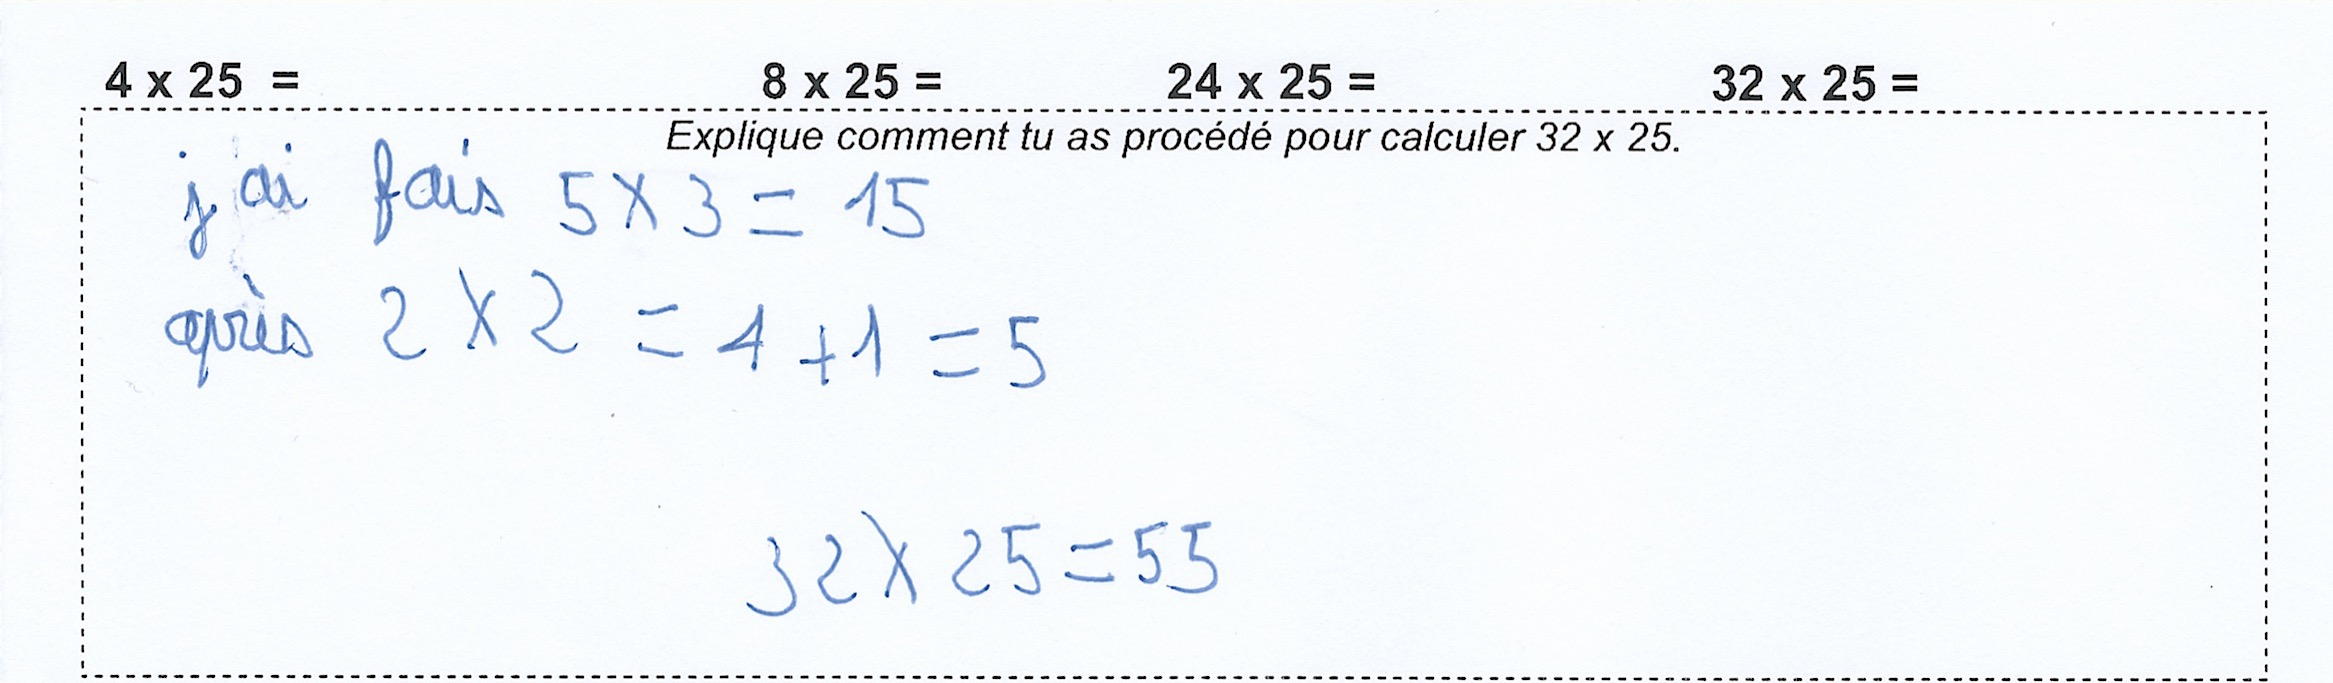 4 x 25 = 8 x 25 = 24 x 25 = 32 x 25 =
Explique comment tu as procédé pour calculer 32 x 25.
j'ai fais 5 X 3 = 15
après 2 X 2 = 4 + 1 = 5
32 X 25 = 55